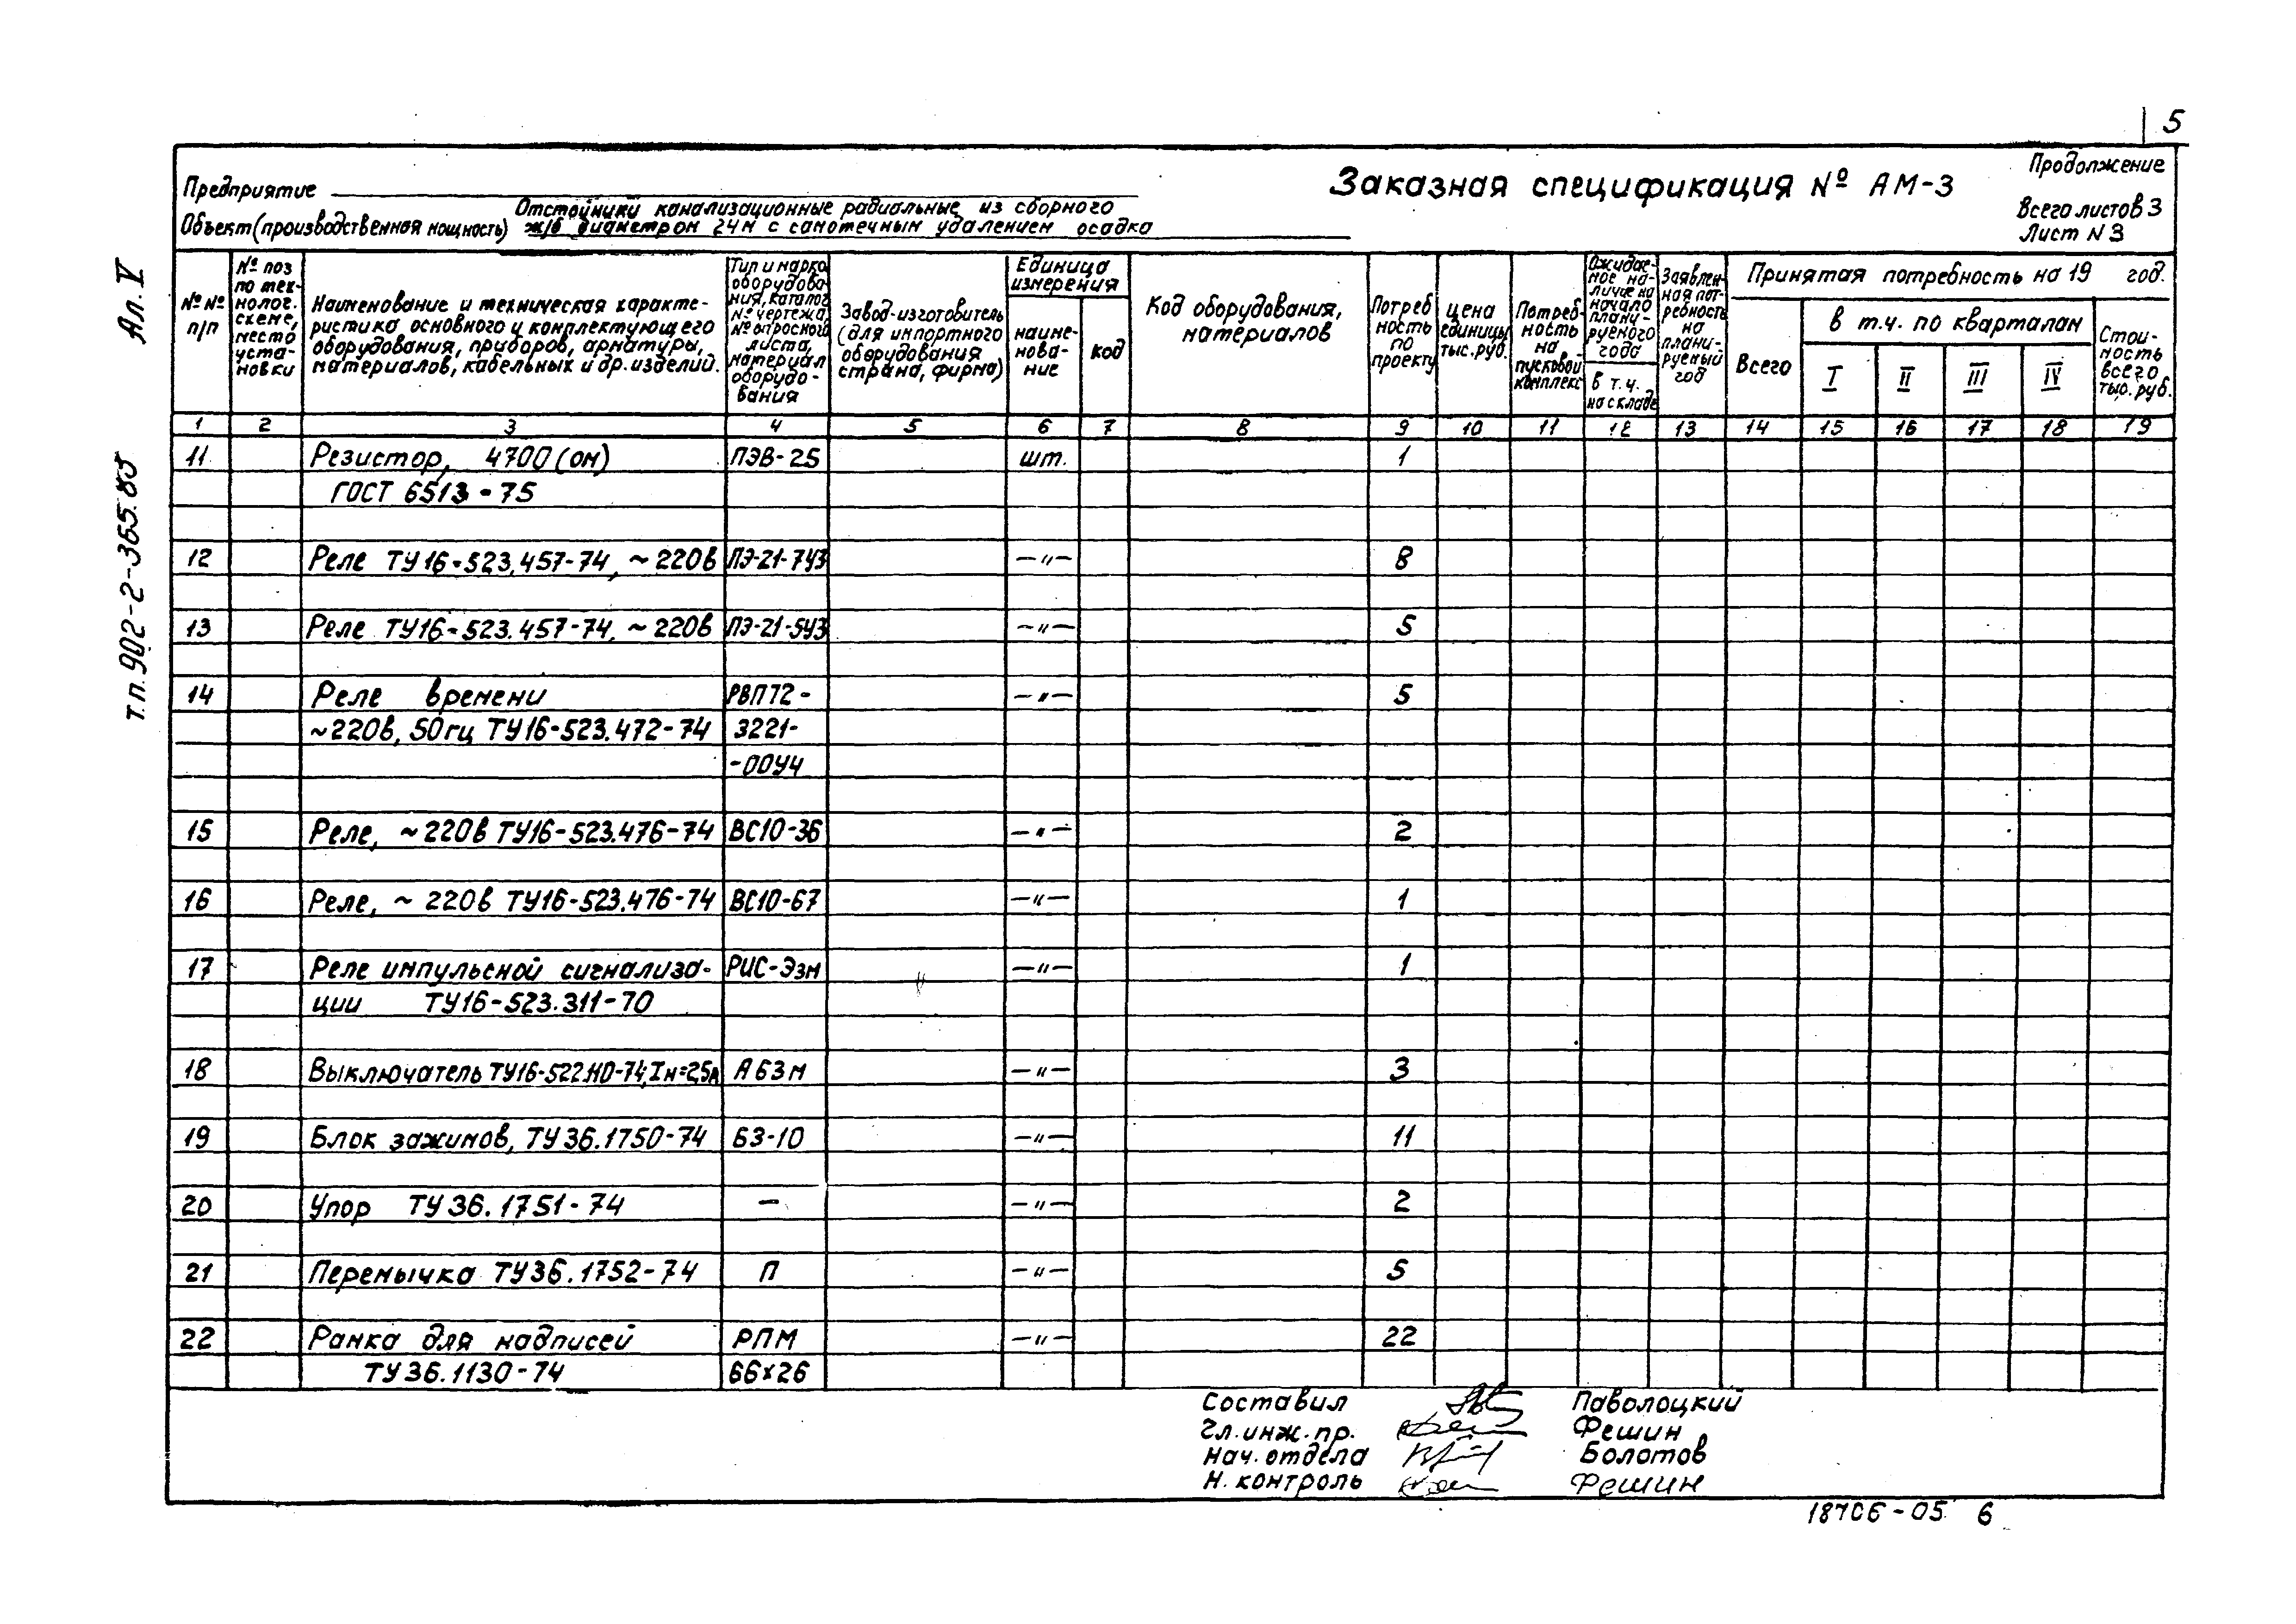 5
Продолжение
Предприятие
Заказная спецификация № АМ-3
Всего листов 3
Лист N 3
Объект (производственная мощность) Отстойники канализационные радиальные из сборного
ж/б диаметром 24м с самотечным удалением осадка
Ал. V
т.п. 902-2-365.85
№ № п/п
№ поз по тех-
нолог.
схеме,
место
уста-
новки
Наименование и техническая характе-
ристика основного и комплектующего
оборудования, приборов, арматуры,
материалов, кабельных и др. изделий.
Тип и марка
оборудова-
ния, каталог
№ чертежа,
№ опросного
листа,
материал
оборудо-
вания
Завод-изготовитель
(для импортного
оборудования
страна, фирма)
Единица
измерения
наиме-
нова-
ние
код
Код оборудования,
материалов
Потреб
ность
по
проекту
Цена
единицы
тыс. руб.
Потреб-
ность
на
пусковой
комплекс
Ожидае-
мое на-
личие на
начало
плани-
руемого
года
в т.ч.
на складе
Заявлен-
ная пот-
ребность
на
плани-
руемый
год
Принятая потребность на 19 год.
Всего
в т.ч. по кварталам
I II III IV
Стои-
мость
всего
тыс. руб.
1 2 3 4 5 6 7 8 9 10 11 12 13 14 15 16 17 18 19
11 Резистор, 4700 (ом) ПЭВ-25 шт. 1
ГОСТ 6513-75
12 Реле ТУ16-523.457-74, ~220в ПЭ-21-7У3 —〃— 8
13 Реле ТУ16-523.457-74, ~220в ПЭ-21-5У3 —〃— 5
14 Реле времени РВП72- —〃— 5
~220в, 50гц ТУ16-523.472-74 3221-
-00У4
15 Реле, ~220в ТУ16-523.476-74 ВС10-36 —〃— 2
16 Реле, ~220в ТУ16-523.476-74 ВС10-67 —〃— 1
17 Реле импульсной сигнализа- РИС-Э3м —〃— 1
ции ТУ16-523.311-70
18 Выключатель ТУ16-522.110-74; Iн=2,5А А63м —〃— 3
19 Блок зажимов, ТУ36.1750-74 БЗ-10 —〃— 11
20 Упор ТУ36.1751-74 — —〃— 2
21 Перемычка ТУ36.1752-74 П —〃— 5
22 Рамка для надписей РПМ —〃— 22
ТУ36.1130-74 66х26
Составил Паволоцкий
Гл. инж. пр. Фешин
Нач. отдела Болотов
Н. контроль Фешин
18706-05 6